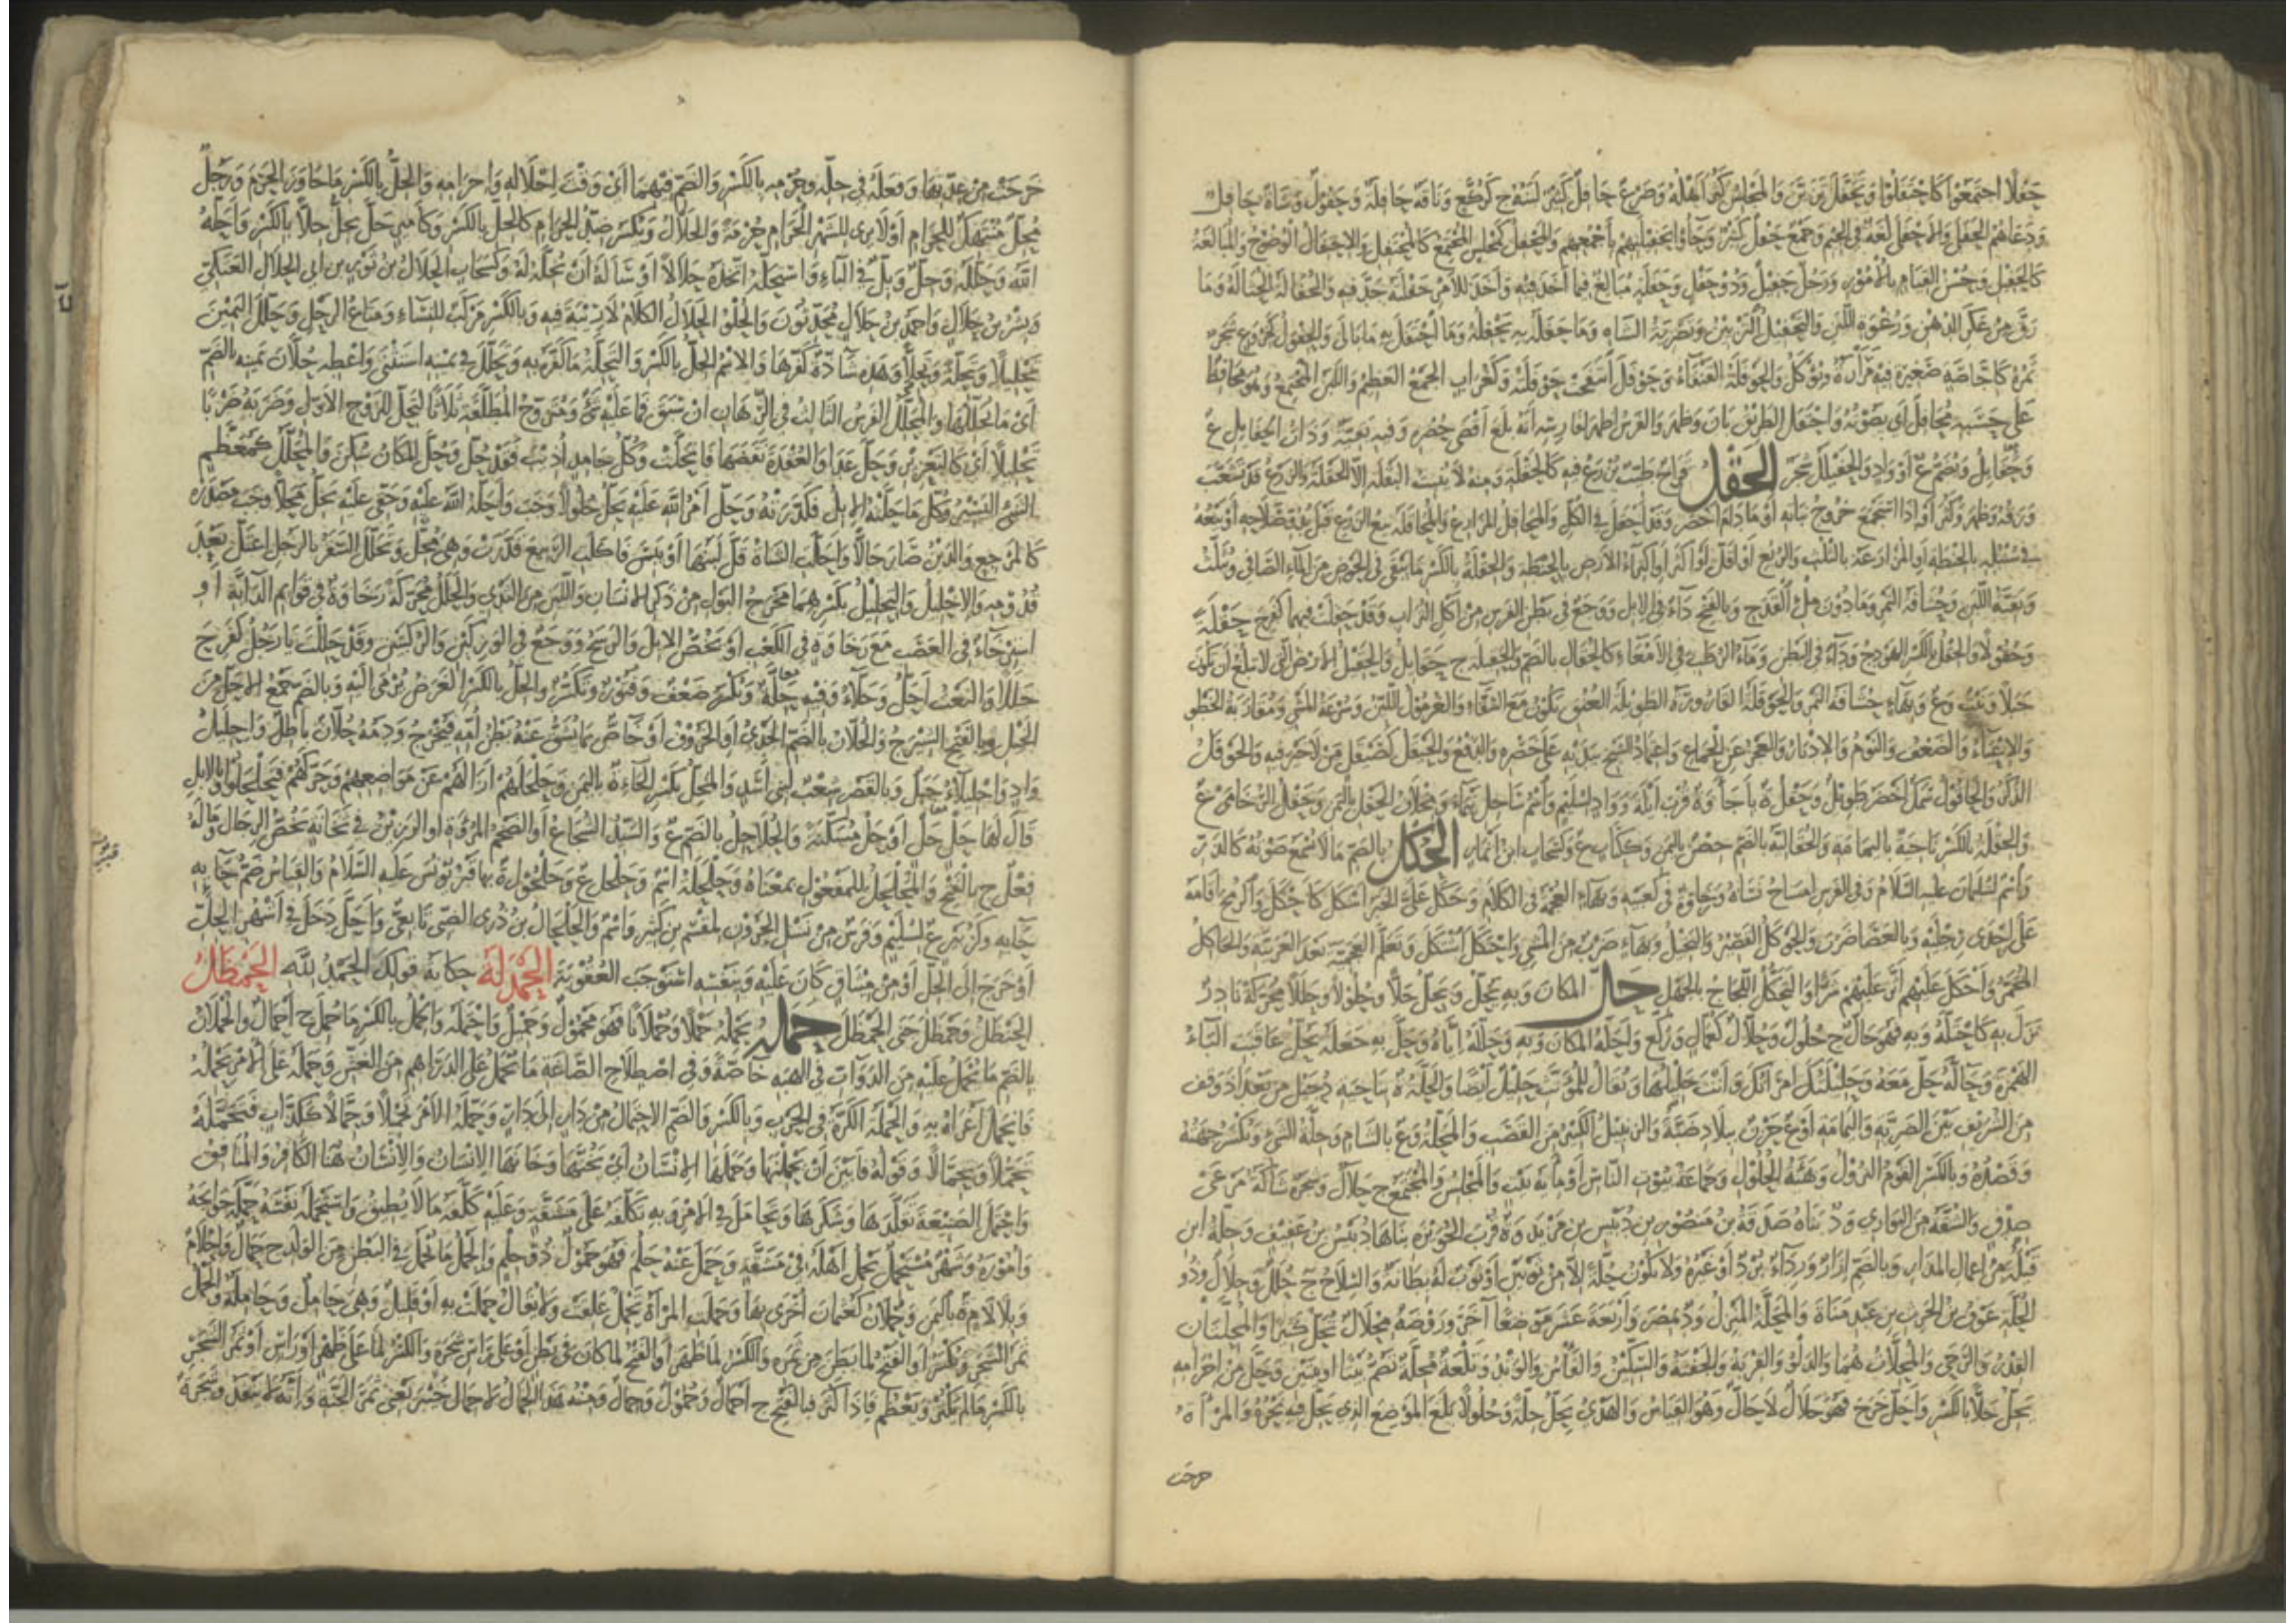 حفلا اجتمعوا كاحتفلوا وتحفل تزين والمجلس كثر اهله وضرع حافل كثير لبنه ج كركع وناقة حافلة وحفول وشاة حافل
ودعاهم الحفلى والاحفلى لغة في الجيم وجمع حفل كثير وجاؤا بحفيلتهم باجمعهم والمحفل كمجلس المجتمع كالمحتفل والاحتفال الوضوح والمبالغة
كالحفيل وحسن القيام بالامور ورجل حفيل وذو حفل وحفلة مبالغ فيما اخذ فيه واخذ للامر حفلته جد فيه والحفالة الحثالة وما
رق من عكر الدهن ورغوة اللبن والتحفيل التزيين وتصرية الشاة وما حفله وبه يحفله وما احتفل به ما بالى والحفول كخروع شجر
ثمره كاجاصة صغيرة فيه مرارة ويؤكل والحوفلة القنفاء وحوفل انتفخت حوفلته وكغراب الجمع العظيم واللبن المجتمع وهو محافظ
على حسبه محافل اي يصونه واحتفل الطريق بان وظهر والفرس اظهر لفارسه انه بلغ اقصى حضره وفيه بقية وذات الحفايل ع
وحفايل ويضم ع او واد والحفيلل شجر الحقل قراح طيب يزرع فيه كالحقلة ومنه لا ينبت البقلة الا الحقلة والزرع قد تشعب
ورقه وظهر وكثر او اذا استجمع خروج نباته او ما دام اخضر وقد احقل في الكل والمحاقل المزارع والمحاقلة بيع الزرع قبل بدو صلاحه او بيعه
في سنبله بالحنطة او المزارعة بالثلث والربع او اقل او اكثر او اكتراء الارض بالحنطة والحقلة بالكسر ما يبقى في الحوض من الماء الصافي ويثلث
وبقية اللبن وحشافة التمر وما دون ملء القدح وبالفتح داء في الابل ووجع في بطن الفرس من اكل التراب وقد حقلت فيهما كفرح حقلة
وحقلا والحقل بالكسر الهودج وداء في البطن وماء الرطب في الامعاء كالحقال بالضم والحقيلة ج حقايل والحقيل الارض التي لا تبلغ ان تكون
جبلا ونبت وع وبهاء حشافة التمر والحوقلة القارورة الطويلة العنق تكون مع السقاء والغرمول اللين وسرعة المشي ومقاربة الخطو
والاعياء والضعف والنوم والادبار والعجز عن الجماع واعتماد الشيخ بيديه على خصره والدفع والحيقل كصيقل من لا خير فيه والحوقل
الذكر والحاقول سمك اخضر طويل وحقل ة باجا وة قرب ايلة وواد لسليم واسم ساحل تيماء ومخلاف الحقل باليمن وحقل الرخامى ع
والحقلة بالكسر ناحية باليمامة والحقالية بالضم حصن باليمن وككتاب ع وكسحاب ابن انمار الحكل بالضم ما لا يسمع صوته كالذر
واسم لسليمان عليه السلام وفي الفرس امساح نساه ورخاوة في كعبه وبهاء العجمة في الكلام وحكل علي الخبر اشكل كاحكل والرمح اقامه
على احدى رجليه وبالعصا ضرب والحوكل القصير والبخيل وبهاء ضرب من المشي واحتكل اشكل وتعلم العجمية بعد العربية والحاكل
المخمن واحكل عليهم اثر عليهم شرا والتحكل اللجاج بالجهل حل المكان وبه يحل ويحل حلا وحلولا وحللا محركة نادر
نزل به كاحتله وبه فهو حال ج حلول وحلال كعمال وركع واحله المكان وبه وحلله اياه وحل به جعله يحل عاقبت الباء
الهمزة وحاله حل معه وحليلتك امراتك وانت حليلها ويقال للمؤنث حليل ايضا والحلة ة بناحية دجيل من بغداد وقف
من الشريف بين الضرية واليمامة او ع حزن ببلاد ضبة والزنبيل الكبير من القصب والمحلة وع بالشام وحلة الشيء ويكسر جهته
وقصده وبالكسر القوم النزول وهيئة الحلول وجماعة بيوت الناس او مائة بيت والمجلس والمجتمع ج حلال وشجرة شاكة مرعى
صدق والشقة من البواري ود بناه صدقة بن منصور بن دبيس بن مزيد وة قرب الحويزة بناها دبيس بن عفيف وحلة ابن
قيلة من اعمال المذار وبالضم ازار ورداء برد او غيره ولا يكون حلة الا من ثوبين او ثوب له بطانة والسلاح ج حلل وحلال وذو
الحلة عوف بن الحرث بن عبد مناة والمحلة المنزل ود بمصر واربعة عشر موضعا اخر وروضة محلال تحل كثيرا والمحلتان
القدر والرحى والمحلات هما والدلو والقربة والجفنة والسكين والفاس والزند وتلعة محلة تضم بيتا او بيتين وحل من احرامه
يحل حلا بالكسر واحل خرج فهو حلال لا حال وهو القياس والهدي يحل حلة وحلولا بلغ الموضع الذي يحل فيه نحره والمراة
خرجت
خرجت من عدتها وفعله في حله وحرمه بالكسر والضم فيهما اي وقت احلاله واحرامه والحل بالكسر ما جاوز الحرم ورجل
محل منتهك للحرام او لا يرى للشهر الحرام حرمة والحلال ويكسر ضد الحرام كالحل بالكسر وكامير حل يحل حلا بالكسر واحله
الله وحلله وحل وبل في الباء واستحله اتخذه حلالا او ساله ان يحله له وكسحاب الحلال بن ثور بن ابي الحلال العتكي
وبشر بن حلال واحمد بن حلال محدثون والحلو الحلال الكلام لا ريبة فيه وبالكسر مركب للنساء ومتاع الرحل وحلل اليمين
تحليلا وتحلة وتحلا وهذه شاذة كفرها والاسم الحل بالكسر والتحلة ما كفر به وتحلل في يمينه استثنى واعطه حلان يمينه بالضم
اي ما يحللها والمحلل الفرس الثالث في الرهان ان سبق فما عليه شيء ومتزوج المطلقة ثلاثا لتحل للزوج الاول وضربه ضربا
تحليلا اي كالتعزير وحل عدا والعقدة نقضها فانحلت وكل جامد اذيب فقد حل وحل المكان سكن والمحلل كمعظم
الشيء اليسير وكل ما حلته الابل فكدرته وحل امر الله عليه يحل حلولا وجب واحله الله عليه وحق عليه يحل محلا وجب مصدره
كالمرجع والدين صار حالا واحلت الشاة قل لبنها او يبس فاكلت الربيع فدرت وهي محل وتحلل السفر بالرجل اعتل بعد
قدومه والاحليل والتحليل بكسرهما مخرج البول من ذكر الانسان واللبن من الثدي والحلل محركة رخاوة في قوايم الدابة او
استرخاء في العصب مع رخاوة في الكعب او يخص الابل والرسح ووجع في الوركين والركبتين وقد حللت يا رجل كفرح
حللا والنعت احل وحلاء وفيه حلة ويكسر ضعف وفتور وتكسر والحل بالكسر الغرض يرمى اليه وبالضم جمع الاحل من
الخيل وبالفتح الشيرج والحلان بالضم الجدي او الخروف او خاص بما يشق عنه بطن امه فيخرج ودمه حلان باطل واحليل
واد واحليلاء جبل وبالقصر شعب لبني اسد والمحل بكسر الحاء ة باليمن وحلحلهم ازالهم عن مواضعهم وحركهم فتحلحلوا والابل
قال لها حل حل او حل مسكنة والحلاحل بالضم ع والسيد الشجاع او الضخم المروة او الرزين في ثخانة يخص الرجال وماله
فعل ج بالفتح والمحلحل للمفعول بمعناه وحلحلة اسم وحلحل ع وحلحول ة بها قبر يونس عليه السلام والقياس ضم حايه
حايه وكزبير ع لسليم وفرس من نسل الحرون لمقسم بن كثير واسم والحلحال بن ذرى الضبي تابعي واحل دخل في اشهر الحل
او خرج الى الحل او من ميثاق كان عليه وبنفسه استوجب العقوبة الحمدلة حكاية قولك الحمد لله الحمظل
الحنظل وحمظل جنى الحمظل حمله يحمله حملا وحملانا فهو محمول وحميل واحتمله والحمل بالكسر ما حمل ج احمال والحملان
بالضم ما يحمل عليه من الدواب في الهبة خاصة وفي اصطلاح الصاغة ما يحمل على الدراهم من الغش وحمله على الامر يحمله
فانحمل اغراه به والحملة الكرة في الحرب وبالكسر والضم الاحتمال من دار الى دار وحمله الامر تحميلا وحمالا ككذاب فتحمله
تحملا وتحمالا وقوله فابين ان يحملنها وحملها الانسان اي يخنها وخانها الانسان والانسان هنا الكافر والمنافق
واحتمل الصنيعة تقلدها وشكرها وتحامل في الامر وبه تكلفه على مشقة وعليه كلفه ما لا يطيق واستحمله نفسه حمله حوايجه
واموره وشهر مستحمل يحمل اهله في مشقة وحمل عنه حلم فهو حمول ذو حلم والحمل ما يحمل في البطن من الولد ج حمال واحمال
وبلا لام ة باليمن وحملان كعثمان اخرى بها وحملت المراة تحمل علقت ولا يقال حملت به او قليل وهي حامل وحاملة والحمل
ثمر الشجر ويكسر او الفتح لما بطن من ثمره والكسر لما ظهر او الفتح لما كان في بطن او على راس شجرة والكسر لما على ظهر او راس او ثمر الشجر
بالكسر ما لم يكثر ويعظم فاذا كثر فبالفتح ج احمال وحمول وحمال ومنه هذا الحمال لا حمال خيبر يعني ثمر الجنة وانه لا ينفد وشجرة